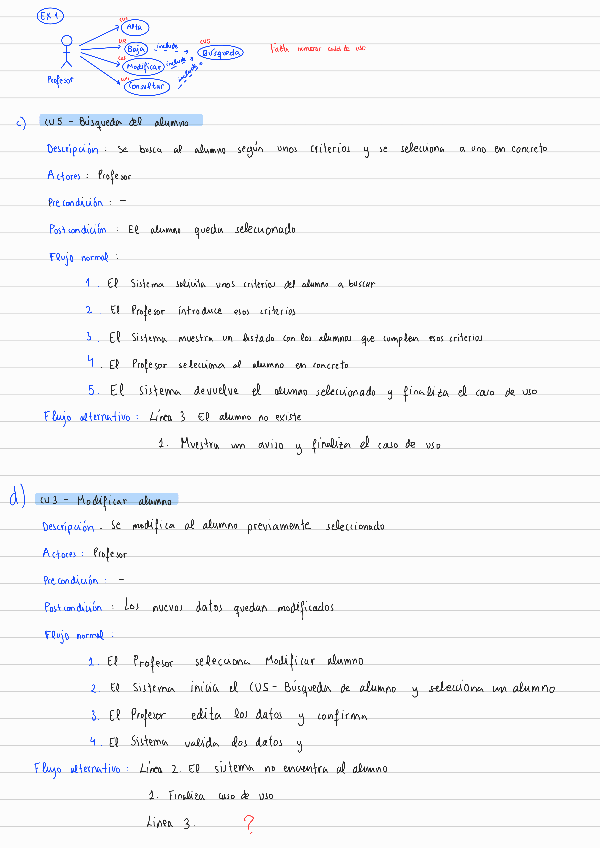 EX 1
CU1
Alta
CU2
Baja
include
CU5
Búsqueda
Falta numerar casos de uso
CU3
Modificar
include
Profesor
CU4
Consultar
include
c) CU5 - Búsqueda del alumno
Descripción : Se busca al alumno según unos criterios y se selecciona a uno en concreto
Actores : Profesor
Precondición : -
Postcondición : El alumno queda seleccionado
Flujo normal :
1. El Sistema solicita unos criterios del alumno a buscar
2. El Profesor introduce esos criterios
3. El Sistema muestra un listado con los alumnos que cumplen esos criterios
4. El Profesor selecciona al alumno en concreto
5. El Sistema devuelve el alumno seleccionado y finaliza el caso de uso
Flujo alternativo : Línea 3. El alumno no existe
1. Muestra un aviso y finaliza el caso de uso
d) CU3 - Modificar alumno
Descripción . Se modifica al alumno previamente seleccionado
Actores : Profesor
Precondición : -
Postcondición : Los nuevos datos quedan modificados
Flujo normal :
1. El Profesor selecciona Modificar alumno
2. El Sistema inicia el CU5 - Búsqueda de alumno y selecciona un alumno
3. El Profesor edita los datos y confirma
4. El Sistema valida los datos y
Flujo alternativo : Línea 2. El sistema no encuentra al alumno
1. Finaliza caso de uso
Línea 3. ?